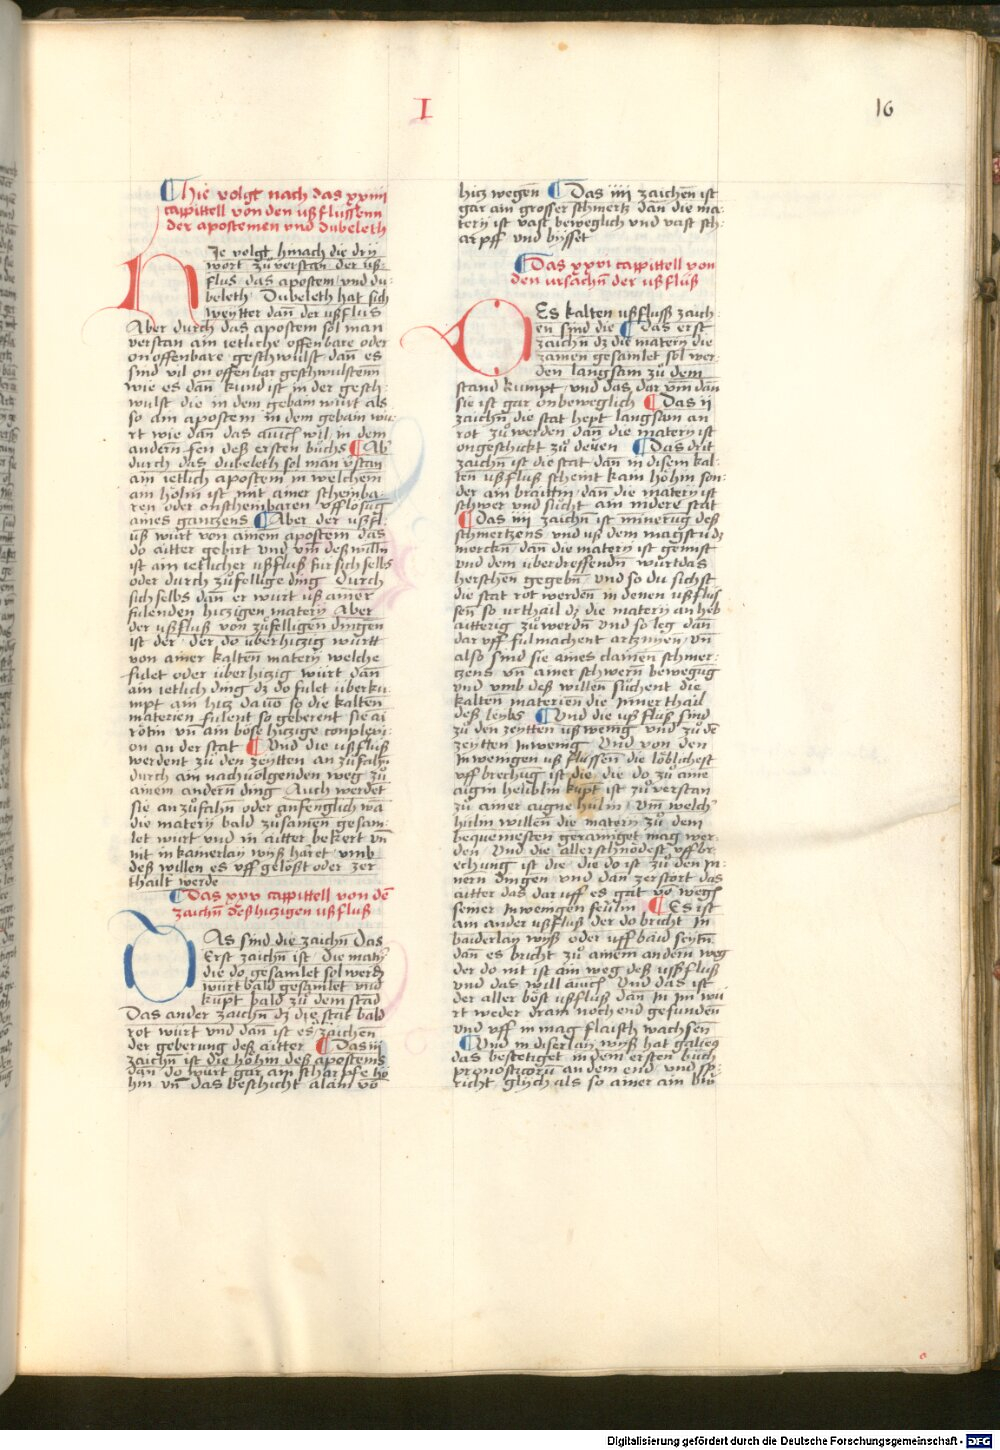 I
16
¶ hie volgt nach das xxiiii
cappittell von den ußflussenn
der apostemen vnd dubeleth
HIe volgt hinach die drÿ
wort zu verstan der uß-
flus das apostem vnd du-
beleth Dubeleth hat sich
weytter dan̄ der ußflus
Aber durch das apostem sol man
verstan ain ietliche offenbare oder
onoffenbare geschwulst dan̄ es
sind vil onoffenbar geschwulstenn
wie es dan̄ kund ist in der gesch-
wulst die in dem gebain wurt als
so ain apostem in dem gebain wu-
rt wie dan̄ das auich wil in dem
andern fen deß ersten buchs ¶ Ab
durch das dubeleth sol man v̄stan
ain ietlich apostem in welchem
ain hölin ist mit ainer scheinba-
ren oder onscheinbaren vfflösu͂g
aines gantzens ¶ Aber der ußfl-
uß wurt von ainem apostem das
do aitter gebirt vnd vm̄ deß willn̄
ist ain ietlicher ußfluß für sich selbs
oder durch zufellige ding Durch
sich selbs dan̄ er wurt uß ainer
fulenden hiczigen matery Aber
der ußfluß von zufelligen dingen
ist der der do überhiczig wurtt
von ainer kalten matery welche
fulet oder überhiczig wurt dan̄
ain ietlich ding dz do fulet überku-
mpt ain hitz dauō so die kalten
materien fulent so geberent sie ai
rötin vn̄ ain böse hiczige conplexi-
on an der stat ¶ Vnd die ußfluß
werdent zu den zeytten an zufahn̄
durch ain nachuolgenden weg zu
ainem andern ding Auch werdet
sie an zufahn̄ oder anfenglich wā
die matery bald zusamen gesam-
let wurt vnd in aitter bekert vn̄
nit in kainerlay wyß haret vmb
deß willen es vff gelößt oder zer
thailt werde
¶ Das xxv cappittell von dē
zaichn̄ deß hiczigen ußfluß
DAs sind die zaichn̄ Das
Erst zaichn̄ ist Die mat͛y
die do gesamlet sol werdē
wurt bald gesamlet vnd
kupt bald zu dem stad
Das ander zaichn̄ dz die stat bald
rot wurt vnd dan ist es zaichen
der geberung deß aitter ¶ Das iii
zaichn̄ ist die höhin deß apostems
dan̄ do wurt gar ain scharpfe hö
hin vn̄ das beschicht alain vō
hitz wegen ¶ Das iiii zaichen ist
gar ain grosser schmertz dan̄ die ma-
tery ist vast beweglich vnd vast sch-
arpff vnd bisset
¶ Das xxvi cappittell von
den vrsachn̄ der ußfluß
DEs kalten ußfluß zaich-
en sind die ¶ das erst
zaichn̄ dz die matery die
zamen gesamlet sol wer-
den langsam zu dem
stand kumpt vnd das dar vm̄ dan̄
sie ist gar onbeweglich ¶ Das ii
zaichn̄ die stat hept langsam an
rot zu werden dan̄ die matery ist
ongeschickt zu deyen ¶ Das drit
zaichn̄ ist die stat dan̄ in disem kal-
ten ußfluß scheint kain höhin son-
der ain braittin dan̄ die matery ist
schwer vnd sucht ain nidere stat
¶ Das iiii zaichn̄ ist minerug deß
schmertzens vnd uß dem magstu dz
mercken̄ dan̄ die matery ist gemist
vnd dem uberdressendn̄ wurt das
herschen gegebn̄ vnd so du sichst
die stat rot werden in denen ußflus
sen so vrthail dz die matery an heb
aitterig zu werdn̄ vnd so leg dan̄
dar vff fulmachent artznyen vn̄
also sind sie aines clainen schmer-
tzens vn̄ ainer schwern bewegug
vnd vmb deß willen suchent die
kalten materien die inner thail
deß leybs ¶ Vnd die ußfluß sind
zu den zeytten ußwenig vnd zu dē
zeytten Inwenig Vnd von den
Inwenigen ußflussen die löblichest
vffbrechug ist die die do zu aine
augin heüblin kupt ist zu verstan
zu ainer aigne hulin vm̄ welch͛
hulin willen die matery zu dem
bequemesten geraumiget mag wer-
den Vnd die aller schnödest vffbr-
echung ist die die do ist zu den in-
nern dingen vnd dan zerstört das
aitter das dar uff es gat vō wegn̄
seiner Inwenigen feulin ¶ Es ist
ain ander ußfluß der do bricht In
baiderlay wyß oder vff baid seytn̄
dan̄ es bricht zu ainem andern weg
der do nit ist ain weg deß ußfluß
vnd das will auich vnd das ist
der aller böst ußfluß dan In im wu
rt weder dram noch end gefunden
vnd vff in mag flaisch wachsen
¶ Vnd in diserlay wyß hat galieg
das bestetiget in dem ersten buch
pronosticoru͂ an dem end vnd sp-
richt glych als so ainer ain bru
Digitalisierung gefördert durch die Deutsche Forschungsgemeinschaft - DFG